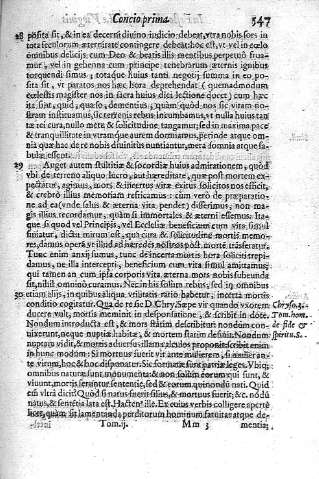 Concio prima. 547
28 posita sit, & in ea decerni diuino iudicio debeat, vtra nobis sors in
tota seculorum æternitate contingere debeat: hoc est, vt vel in cœlo
omnibus delicijs cum Deo & beatis illis mentibus perpetuò frua-
mur, vel in gehenna cum principe tenebrarum æternis ignibus
torquendi simus; totaque huius tanti negotij summa in eo po-
sita sit, vt paratos nos hæc hora deprehendat (quemadmodum
ecclesiis magister nos in hac lectione docet) cum hæc
ita sint, quid, quæso, dementius, quàm quòd nos sic vitam no-
stram instituamus, sic terrenis rebus incumbamus, vt nulla huius tan-
tæ rei cura, nullo metu & solicitudine tangamur, sed in maxima pace
& tranquillitate in vtramque aurem dormiamus, perinde atque om-
nia quæ hac de re nobis diuinitus nuntiantur, mera somnia atque fa-
bulæ essent.
29 Auget autem stultitiæ & socordiæ huius admirationem, quòd
vbi de terreno aliquo lucro, aut hæreditate, quæ post mortem ex-
pectatur, agimus, mors & incertus vitæ exitus solicitos nos efficit,
& crebrò illius memoriam reficimus: cùm verò de præparatio-
ne ad ea (vnde salus & æterna vita pendet) disserimus, non ma-
gis illius recordamur, quàm si immortales & æterni essemus. Ita-
que si quod vel Principis, vel Ecclesiæ beneficium cum vita simul
finiatur, dici mirum est qua solicitudine mortis memo-
res, damus opera vt illud ad heredes nostros post morte trāsferatur.
Tunc enim anxij sumus, tunc de incerta mortis hora soliciti trepi-
damus, ne illa intercepti, beneficium cum vita simul amittamus,
qui tamen an cum ipsa corporis vita æterna mors nobis subeunda
sit, nihil omninò curamus. Nec in his solùm rebus, sed in omnibus
30 etiam alijs, in quibus aliqua vtilitatis ratio habetur, incerta mortis
conditio cogitatur. Qua de re sic D. Chrys. Sæpe vir quando vxorem Chrysos.
ducere vult, mortis meminit in desponsatione, & scribit in dote. Tom. hom.
Nondum introducta est, & mors statim describitur nondum con- de fide &
uixerunt, neque nuptiæ habitæ, & mortem statim desuiit. Nondum spiritu S.
nuptam vidit, & mortis aduersus illam calculos proponit scribit enim
in hunc modum: Si mortuus fuerit vir ante mulierem, si mulier an-
te virum, hoc & hoc disponatur. Sic formatæ sunt patriæ leges. Vbiq;
omnibus natura sunt monumenta: & non solùm eorum qui sunt, &
viuunt, mortis feruntur sententiæ, sed & eorum qui nondū nati. Quid
enim vltrà dicit? Quòd si natus fuerit filius, & mortuus fuerit; &c. nondū
natus, & sententia lata est. Hactenus ille. Ex cuius verbis colligere apertè
licet, quàm sit lamentanda perditorum hominum fatuitas atque de-
Tom. ij. Mm 3 mentia;